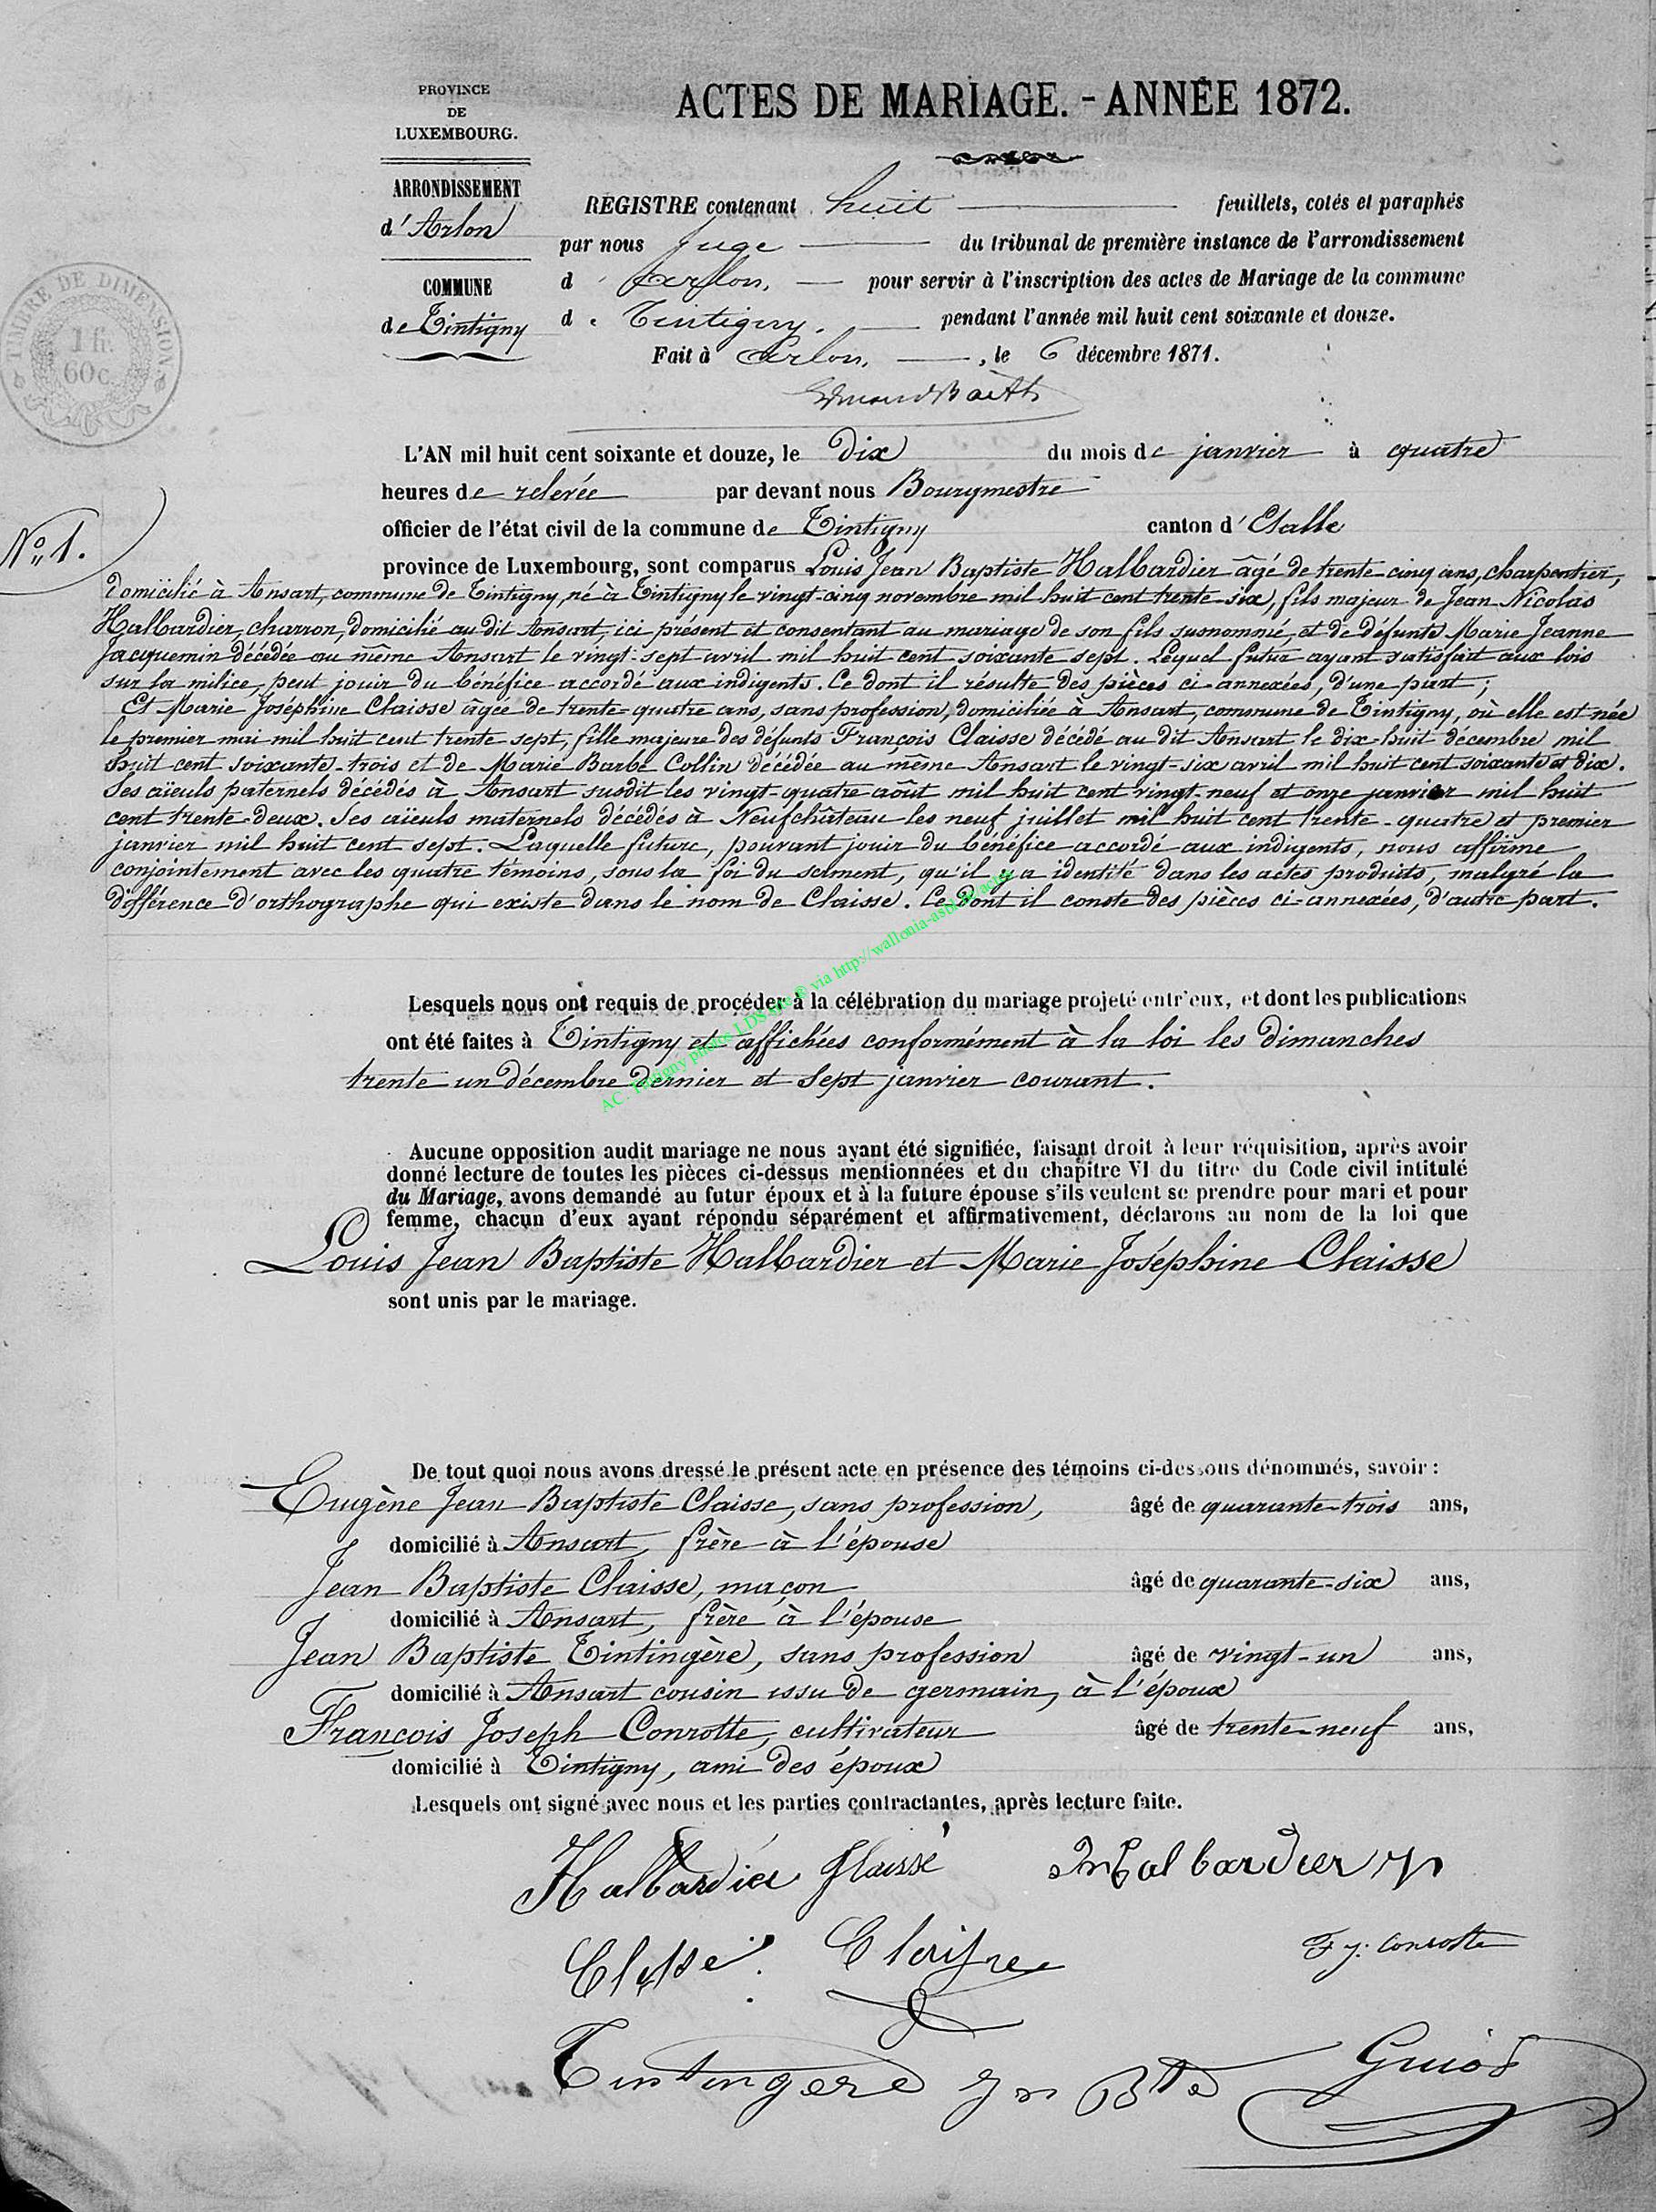 PROVINCE
DE
LUXEMBOURG.
ARRONDISSEMENT
d'Arlon
COMMUNE
de Tintigny
TIMBRE DE DIMENSION
1 fr.
60 c.
ACTES DE MARIAGE. - ANNÉE 1872.
REGISTRE contenant huit feuillets, cotés et paraphés
par nous Juge du tribunal de première instance de l'arrondissement
d' Arlon, pour servir à l'inscription des actes de Mariage de la commune
de Tintigny. pendant l'année mil huit cent soixante et douze.
Fait à Arlon, , le 6 décembre 1871.
L'AN mil huit cent soixante et douze, le dix du mois de janvier à quatre
heures de relevée par devant nous Bourgmestre
officier de l'état civil de la commune de Tintigny canton d'Etalle
No 1.
province de Luxembourg, sont comparus Louis Jean Baptiste Halbardier âgé de trente-cinq ans, charpentier,
domicilié à Ansart, commune de Tintigny, né à Tintigny le vingt-cinq novembre mil huit cent trente-six, fils majeur de Jean Nicolas
Halbardier, charron, domicilié au dit Ansart, ici présent et consentant au mariage de son fils susnommé, et de défunte Marie Jeanne
Jacquemin décédée au même Ansart le vingt-sept avril mil huit cent soixante sept. Lequel futur ayant satisfait aux lois
sur la milice, peut jouir du bénéfice accordé aux indigents. Ce dont il résulte des pièces ci-annexées, d'une part;
Et Marie Joséphine Claisse âgée de trente-quatre ans, sans profession, domiciliée à Ansart, commune de Tintigny, où elle est née
le premier mai mil huit cent trente sept, fille majeure des défunts François Claisse décédé au dit Ansart le dix-huit décembre mil
huit cent soixante-trois et de Marie Barbe Collin décédée au même Ansart le vingt-six avril mil huit cent soixante et dix.
Ses aïeuls paternels décédés à Ansart susdit les vingt-quatre août mil huit cent vingt-neuf et onze janvier mil huit
cent trente-deux. Ses aïeuls maternels décédés à Neufchâteau les neuf juillet mil huit cent trente-quatre et premier
janvier mil huit cent sept. Laquelle future, pouvant jouir du bénéfice accordé aux indigents, nous affirme
conjointement avec les quatre témoins, sous la foi du serment, qu'il y a identité dans les actes produits, malgré la
différence d'orthographe qui existe dans le nom de Claisse. Ce dont il conste des pièces ci-annexées, d'autre part.
Lesquels nous ont requis de procéder à la célébration du mariage projeté entr'eux, et dont les publications
ont été faites à Tintigny et affichées conformément à la loi les dimanches
trente un décembre dernier et sept janvier courant.
AC. Tintigny photos LDS via http://wallonia-asbl
Aucune opposition audit mariage ne nous ayant été signifiée, faisant droit à leur réquisition, après avoir
donné lecture de toutes les pièces ci-dessus mentionnées et du chapitre VI du titre du Code civil intitulé
du Mariage, avons demandé au futur époux et à la future épouse s'ils veulent se prendre pour mari et pour
femme, chacun d'eux ayant répondu séparément et affirmativement, déclarons au nom de la loi que
Louis Jean Baptiste Halbardier et Marie Joséphine Claisse
sont unis par le mariage.
De tout quoi nous avons dressé le présent acte en présence des témoins ci-dessous dénommés, savoir :
Eugène Jean Baptiste Claisse, sans profession, âgé de quarante-trois ans,
domicilié à Ansart, frère à l'épouse
Jean Baptiste Claisse, maçon âgé de quarante-six ans,
domicilié à Ansart, frère à l'épouse
Jean Baptiste Tintingère, sans profession âgé de vingt-un ans,
domicilié à Ansart cousin issu de germain, à l'époux
François Joseph Conrotte, cultivateur âgé de trente-neuf ans,
domicilié à Tintigny, ami des époux
Lesquels ont signé avec nous et les parties contractantes, après lecture faite.
Halbardier Glaisse Halbardier
Claisse F. J. Conrotte
Tintingere Jn Bte Guiot